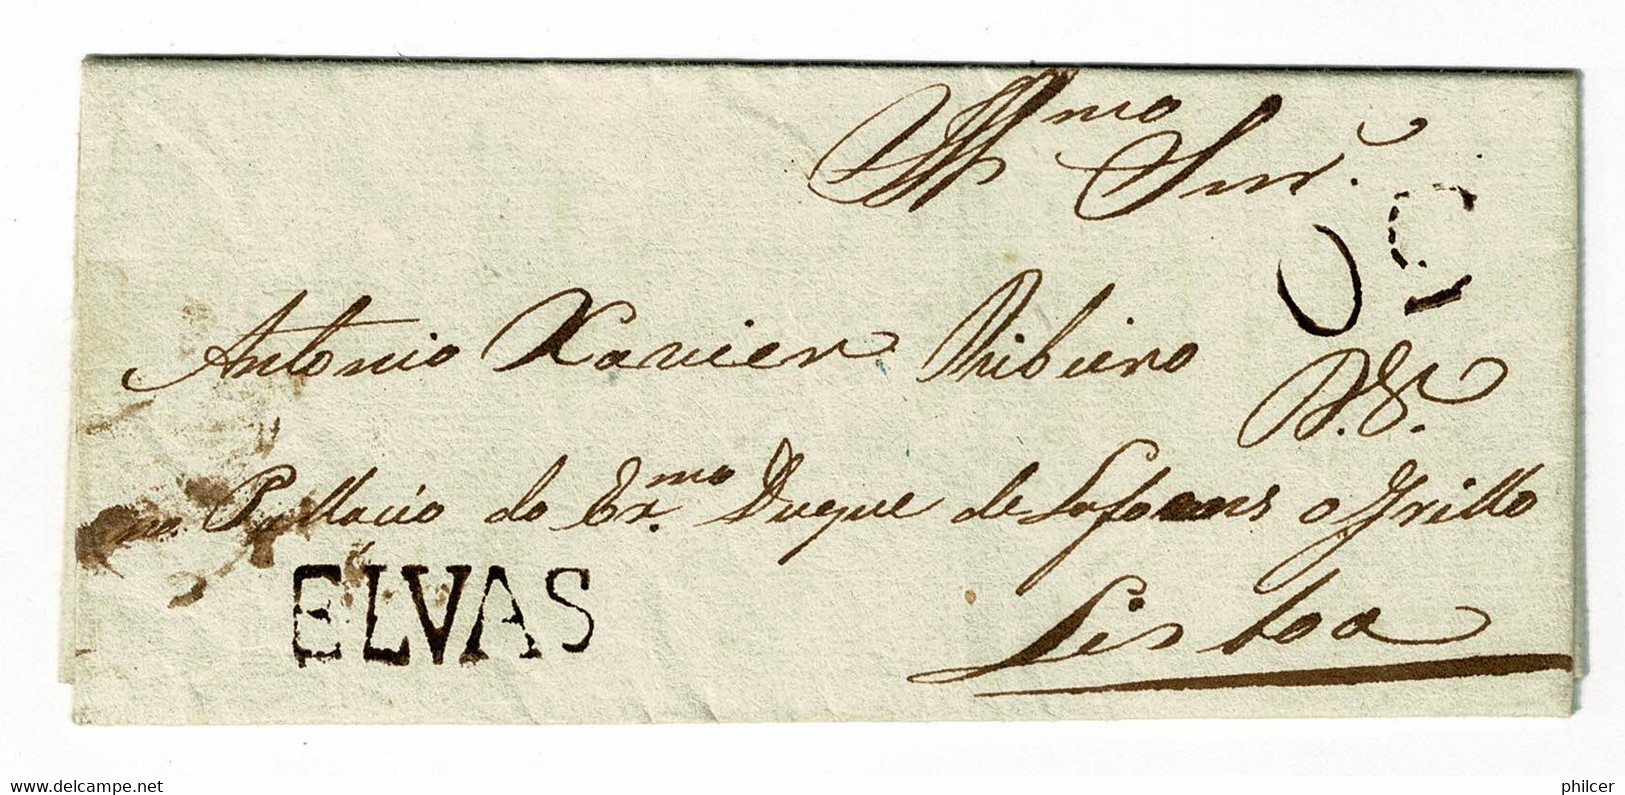 Illmo Snr.
Antonio Xavier Ribeiro
no Pallacio do Exmo Duque de Lafoens o Grillo
Lisboa
ELVAS
delcampe.net
philcer